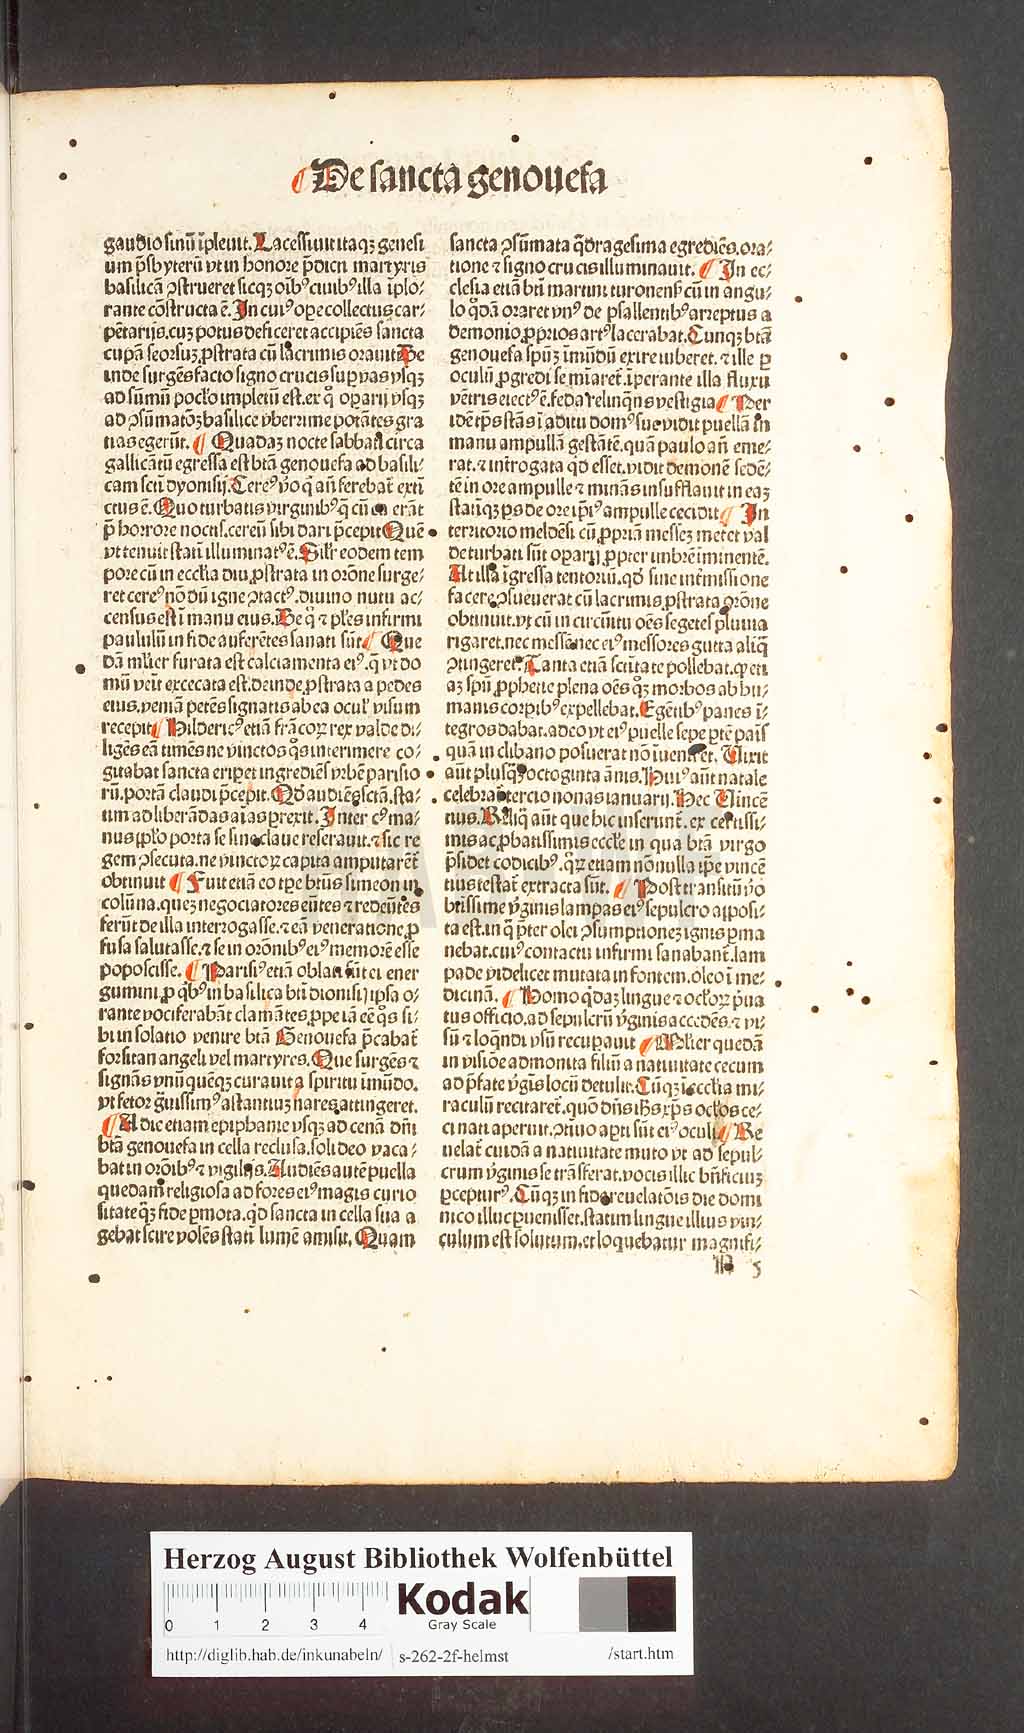 De sancta genouefa
gaudio sinū īpleuit. Lacessiuit itaqꝫ genesi
um p̄sbyterū vt in honore p̄dicti martyris
basilicā ꝯstrueret sicqꝫ oīb⁹ ciuib⁹ illa īplo⸗
rante cōstructa ē. In cui⁹ ope collectus car⸗
pētarijs. cuꝫ potus deficeret accipiēs sancta
cupā seorsuꝫ ꝓstrata cū lacrimis orauit De
inde surgēs facto signo crucis suꝑ vas vsqꝫ
ad sūmū pocl̄o impletū est. ex q̊ oꝑarij vsqꝫ
ad ꝯsūmatōꝫ basilice vberrime potātes gra
tias egerūt. ¶ Quadaꝫ nocte sabbati circa
gallicātū egressa est btā genouefa ad basili⸗
cam scti dyonisij. Cere⁹ v̊o q̄ an̄ ferebat̄ extī
ctus ē. Quo turbatis virginib⁹ q̄ cū ea erāt
p̄ horrore noctis. cereū sibi dari p̄cepit Quē
vt tenuit statī illuminat⁹ ē. Silr̄ eodem tem
pore cū in eccl̄ia diu ꝓstrata in orōne surge⸗
ret cere⁹ nōdū igne ꝯtact⁹. diuino nutu ac⸗
census est ī manu eius. De q̊ ⁊ pl̄es infirmi
paululū in fide auferētes sanati sūt ¶ Que
dā ml̄ier furata est calciamenta ei⁹. q̄ vt do
mū venit excecata est. deinde ꝓstrata a pedes
eius. veniā petēs signatis ab ea ocul̄ visum
recepit ¶ Hilderic⁹ etiā frācoꝝ rex valde di⸗
ligēs eā timēs ne vinctos q̊s interimere co⸗
gitabat sancta eripet ingrediēs vrbē parisio
rū. portā claudi p̄cepit. Qd̄ audiēs sctā. sta⸗
tim ad liberādas aīas ꝑrexit. Inter c⁹ ma⸗
nus ip̄o porta se sine claue reserauit. ⁊ sic re
gem ꝯsecuta. ne vinctoꝝ capita amputarēt̄
obtinuit ¶ Fuit etiā eo tp̄e btūs simeon in
colūna. queꝫ negociatores eūtes ⁊ redeūtes
ferūt de illa interrogasse. ⁊ eā veneratione ꝓ
fusa salutasse. ⁊ se in orōnib⁹ ei⁹ memorē esse
poposcisse. ¶ Parisi⁹ etiā oblati sūt ei ener
gumini. ꝓ qb⁹ in basilica bti dionisij ipsa o⸗
rante vociferabāt clamātes. ꝓpe iā cē q̊s si⸗
bi in solatio venire btā Genouefa p̄cabat̄
forsitan angeli vel martyres. Que surgēs ⁊
signās vnūquēqꝫ curauit a spiritu īmūdo.
vt fetor g̊uissim⁹ astantiuꝫ nares attingeret.
¶ A die etiam epiphanie vsqꝫ ad cenā dn̄i
btā genouefa in cella reclusa. soli deo vaca⸗
bat in orōib⁹ ⁊ vigilijs. Audiēs autē puella
quedam religiosa ad fores ei⁹ magis curio
sitate qꝫ fide ꝑmota. qd̄ sancta in cella sua a
gebat scire volēs statī lumē amisit. Quam
sancta ꝯsūmata q̄dragesima egrediēs. ora⸗
tione ⁊ signo crucis illuminauit. ¶ In ec⸗
clesia etiā bti martini turonens̄ cū in angu⸗
lo q̊dā oraret vn⁹ de psallentib⁹ arreptus a
demonio. ꝓprios art⁹ lacerabat. Cunqꝫ btā
genouefa spūꝫ īmūdū exire iuberet. ⁊ ille ꝑ
oculū ꝓgredi se mīaret̄. īperante illa fluxu
vētris eiect⁹ ē. feda relinqn̄s vestigia ¶ Per
idē tp̄s stās ī aditu dom⁹ sue vidit puellā in
manu ampullā gestātē. quā paulo an̄ eme⸗
rat. ⁊ intrrogata qd̄ esset. vidit demonē sedē⸗
tē in ore ampulle ⁊ minās insufflauit in eaꝫ
statīqꝫ ꝑs de ore ip̄i⁹ ampulle cecidit ¶ In
territorio meldēsi cū ꝓpriā messeꝫ metet val
de turbati sūt oꝑarij ꝓpter imbrē iminentē.
At illa īgressa tentoriū. qd̄ sine intmissione
facere ꝯsueuerat cū lacrimis ꝓstrata orōne
obtinuit. vt cū in circūitu oēs segetes pluuia
rigaret. nec messē nec ei⁹ messores gutta aliq̄
ꝯtingeret. Tanta etiā scti̅tate pollebat. qꝫ eti
aꝫ spū ꝓphetie plena oēs qꝫ morbos ab hu⸗
manis corꝑib⁹ expellebat. Egētib⁹ panes ī⸗
tegros dabat. adeo vt ei⁹ puelle sepe ꝑtē pais̄
quā in clibano posuerat nō īuenret. Uixit
aūt plusqꝫ octoginta ānis. Hui⁹ aūt natale
celebrat̄ tercio nonas ianuarij. Hec Uincē
tius. Reliq̄ aūt que hic inserunt̄. ex certissi⸗
mis ac ꝓbatissimis eccl̄e in qua btā virgo
p̄sidet codicib⁹. qꝝ etiam nōnulla ip̄e vincē
tius testat̄ extracta sūt. ¶ Post transitū v̊o
btissime v̄ginis lampas ei⁹ sepulcro apposi⸗
ta est. in q̄ p̄ter olei ꝯsumptioneꝫ ignis ꝑma
nebat. cui⁹ contactu infirmi sanabant̄. lam
pade videlicet mutata in fontem. oleo ī me⸗
dicinā. ¶ Homo q̊daꝫ lingue ⁊ ocl̄oꝝ p̄ua
tus officio. ad sepulcrū v̄ginis accedēs. ⁊ vi⸗
sū ⁊ loqn̄di vsū recuꝑauit ¶ Ml̄ier quedā
in visiōe admonita filiū a natiuitate cecum
ad p̄fate v̄gis̄ locū detulit. Cūqꝫ ī eccl̄ia mi⸗
raculū recitaret̄. quō dn̄s ih̄s xp̄s ocl̄os ce⸗
ci nati aperuit. ꝯtinuo aꝑti sūt ei⁹ oculi ¶ Re
uelat̄ cuidā a natiuitate muto vt ad sepul⸗
crum v̄ginis se trāsferat. vocis illic bn̄ficiuꝫ
ꝑceptur⁹. Cūqꝫ in fide reuelatōis die domi
nico illuc ꝑuenisset. statim lingue illius vin⸗
culum est solutum. et loquebatur magnifi⸗
5
Herzog August Bibliothek Wolfenbüttel
0 1 2 3 4
Kodak
Gray Scale
http://diglib.hab.de/inkunabeln/ s-262-2f-helmst /start.htm
HAB